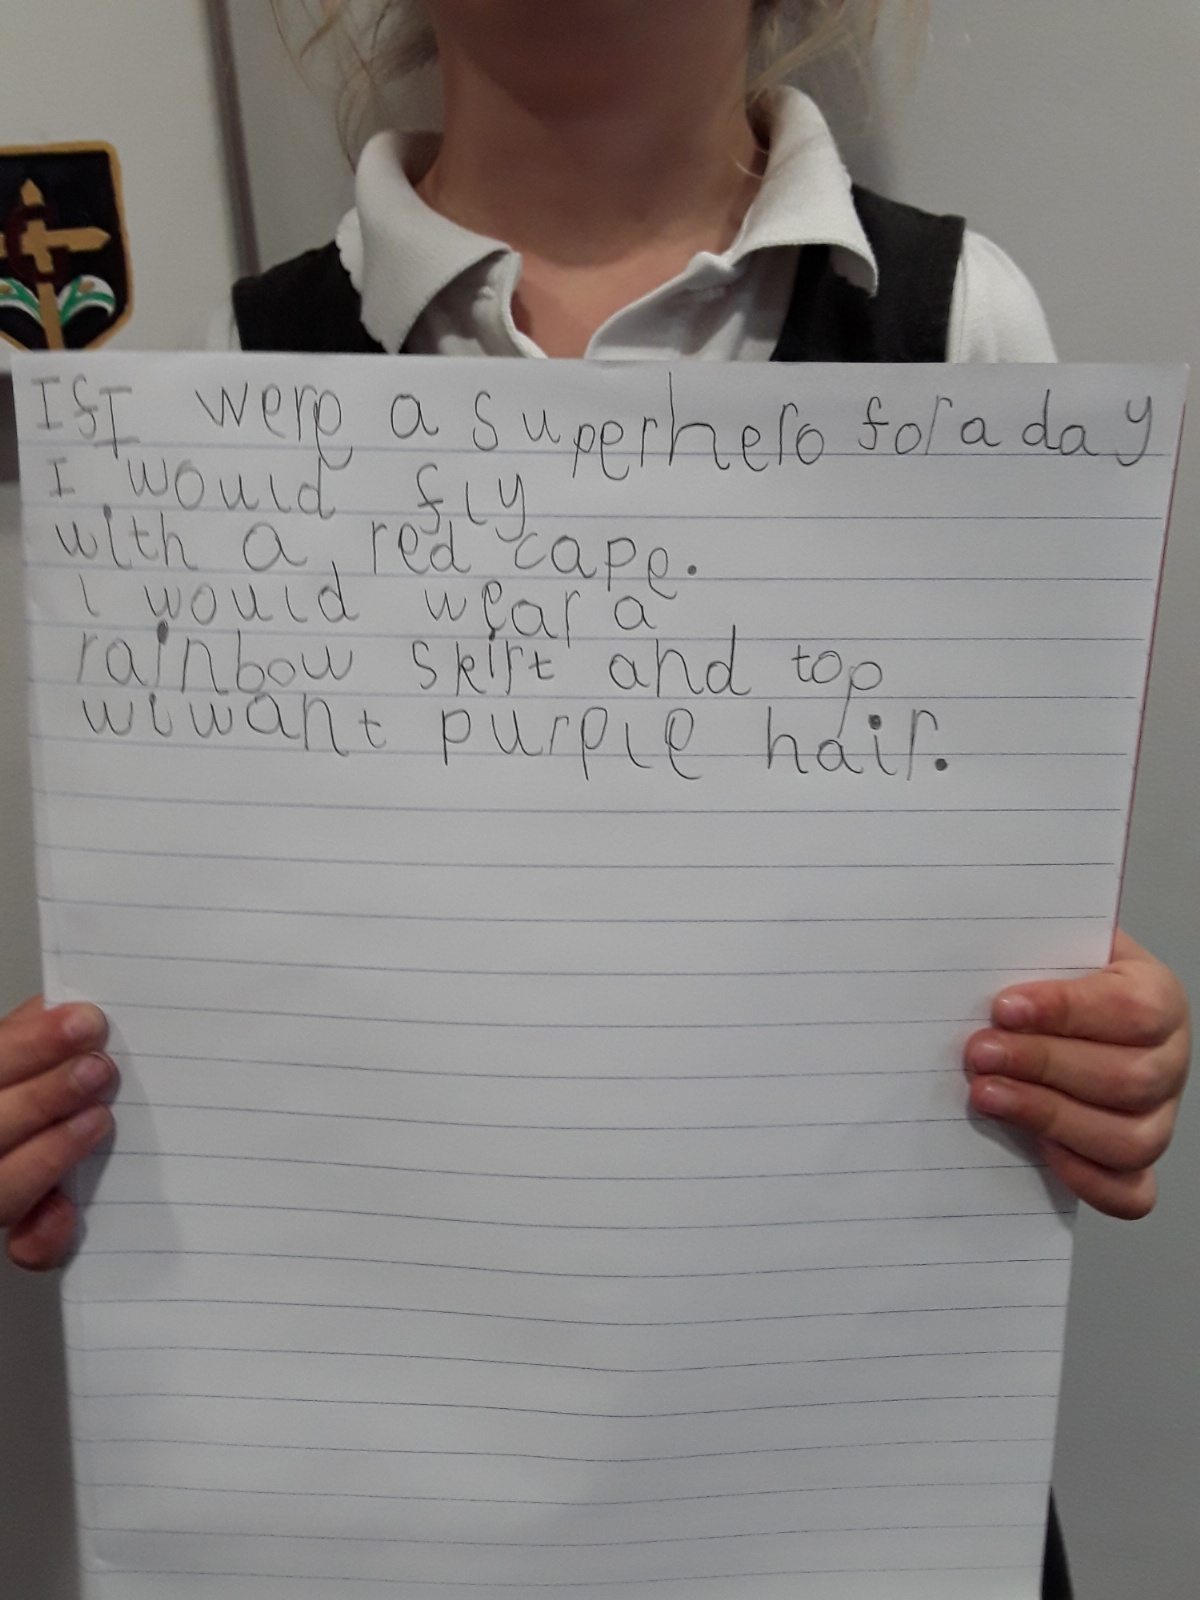 If I were a superhero for a day
I would fly
with a red cape.
I would wear a
rainbow skirt and top
wiwant purple hair.